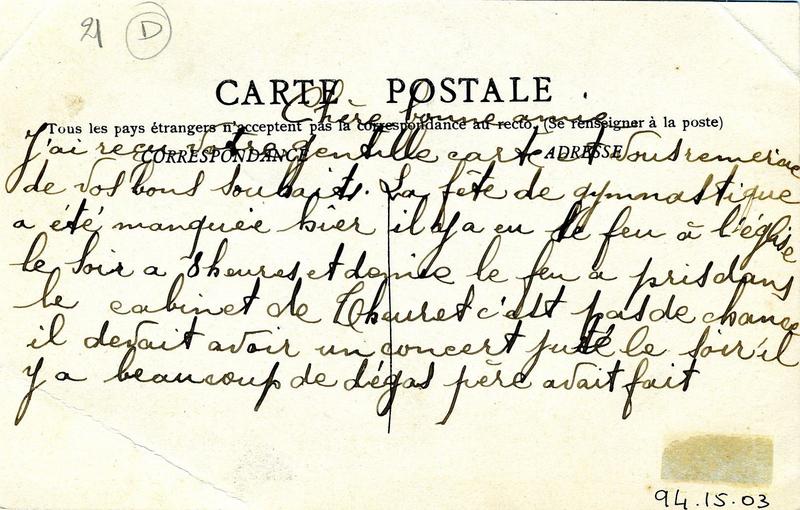 21 D
CARTE POSTALE
Chère bonne amie
Tous les pays étrangers n'acceptent pas la correspondance au recto. (Se renseigner à la poste)
J'ai reçu votre gentille carte et vous remercie
CORRESPONDANCE ADRESSE
de vos bons souhaits. La fête de gymnastique
a été manquée hier il y a eu le feu à l'église
le soir a 8 heures et demie le feu a pris dans
le cabinet de Theuret c'est pas de chance
il devait avoir un concert juste le soir il
y a beaucoup de dégas père avait fait
94.15.03